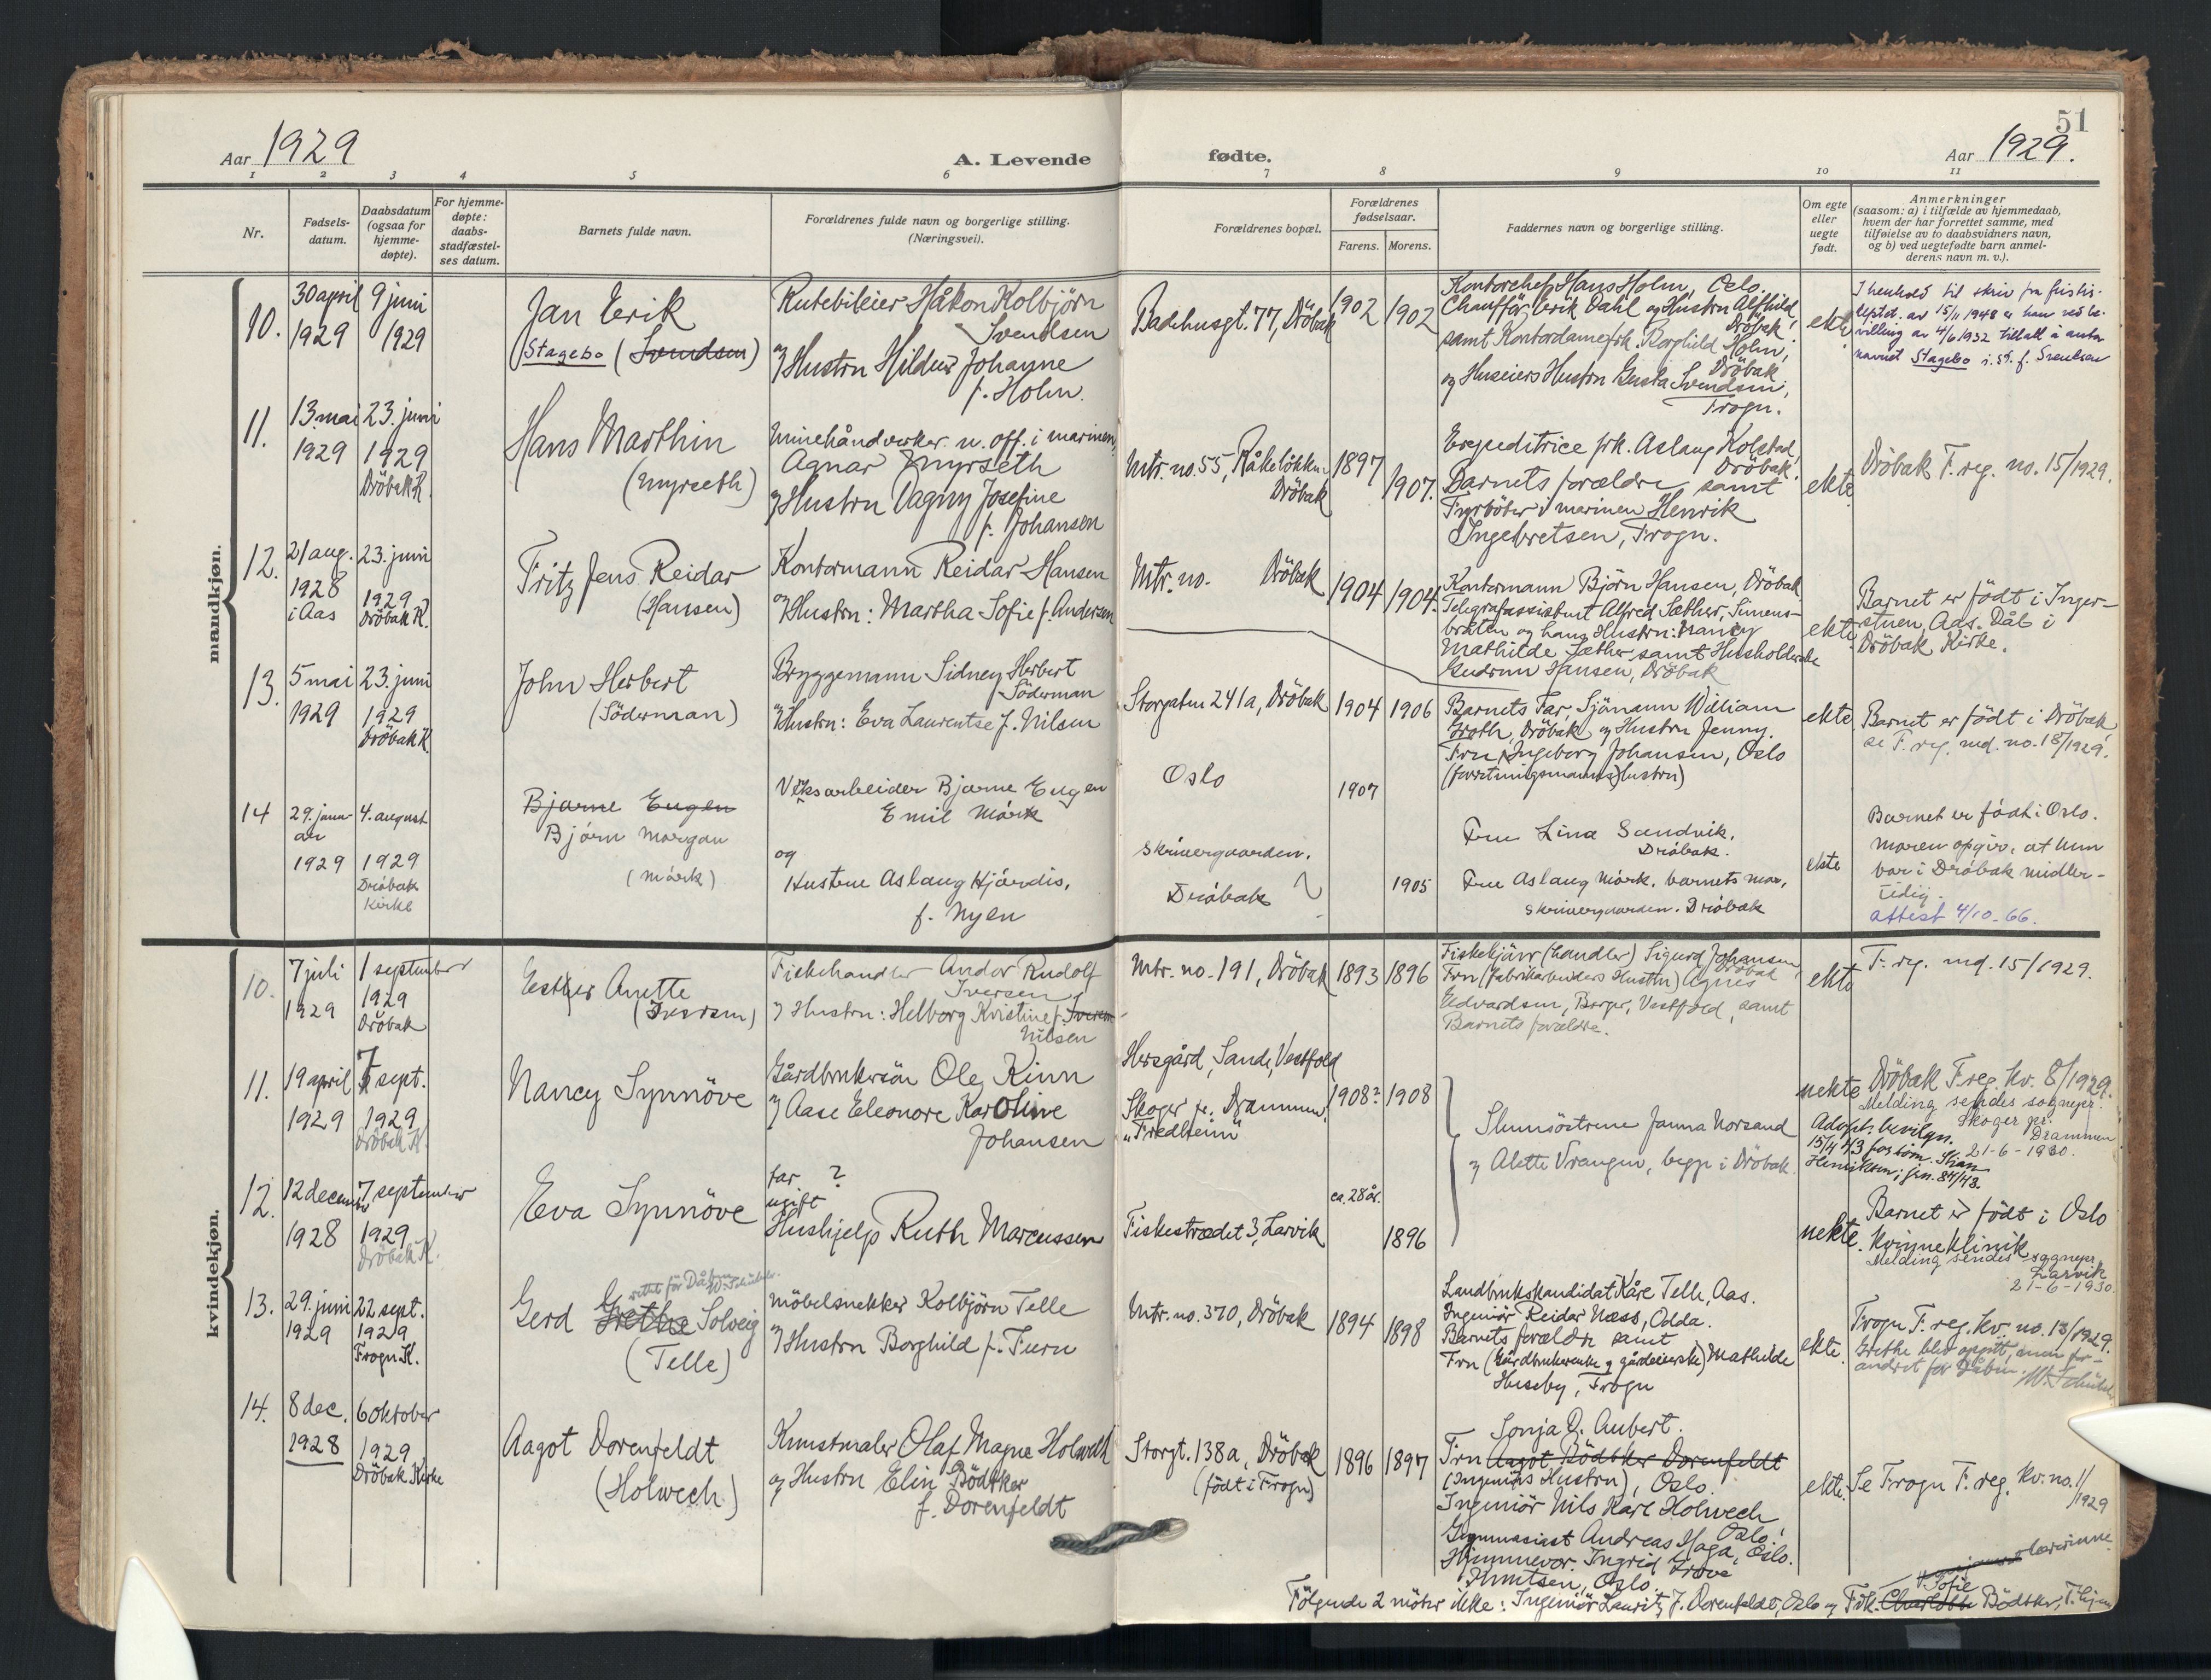 Aar 1929
A. Levende
fødte.
51
Aar 1929.
1 2 3 4 5 6 7 8 9 10 11
Nr.
Fødsels-
datum.
Daabsdatum
(ogsaa for
hjemme-
døpte).
For hjemme-
døpte:
daabs-
stadfæstel-
ses datum.
Barnets fulde navn.
Forældrenes fulde navn og borgerlige stilling.
(Næringsvei).
Forældrenes bopæl.
Forældrenes
fødselsaar.
Farens. Morens.
Faddernes navn og borgerlige stilling.
Om egte
eller
uegte
født.
Anmerkninger
(saasom: a) i tilfælde av hjemmedaab,
hvem der har forrettet samme, med
tilføielse av to daabsvidners navn,
og b) ved uegtefødte barn anmel-
derens navn m. v.).
mandkjøn.
10.
30 april
1929
9 juni
1929
Jan Erik
Stagebo (Svendsen)
Rutebileier Håkon Kolbjörn
Svendsen
og Hustru Hildur Johanne
f. Holm.
Badehusgt. 77, Dröbak
1902
1902
Kontorchef Hans Holm, Oslo.
Chaufför Erik Dahl og Hustru Alfhild,
Dröbak,
samt Kontordame frk. Borghild Holm,
Dröbak
og Huseiers Hustru Gusta Svendsen,
Frogn.
ekte
I henhold til skriv fra Justis-
dept. av 15/11 1948 er han ved be-
villing av 4/6 1932 tillatt å anta
navnet Stagebo i. st. f. Svendsen
11.
13. mai
1929
23. juni
1929
Dröbak K.
Hans Marthin
(Myrseth)
Minehåndverker u. off. i marinen,
Agnar Myrseth
og Hustru Dagny Josefine
f. Johansen
Mtr. no. 55, Råkelökken
Dröbak
1897
1907.
Expeditrice frk. Aslaug Kolstad,
Dröbak.
Barnets forældre samt
Fyrböter i marinen Henrik
Ingebretsen, Frogn.
ekte
Dröbak F. reg. no. 15/1929.
12.
21 aug.
1928
i Aas
23. juni
1929
Dröbak K.
Fritz Jens Reidar
(Hansen)
Kontormann Reidar Hansen
og Hustru: Martha Sofie f. Andersen
Mtr. no. Dröbak
1904
1904.
Kontormann Björn Hansen, Dröbak
Telegrafassistent Alfred Sæther, Simens-
bråten og hans Hustru: Nancy
Mathilde Sæther samt Husholderske
Gudrun Hansen, Dröbak
ekte
Barnet er födt i Inger-
stuen, Aas. Dåb i
Dröbak Kirke.
13.
5 mai
1929
23. juni
1929
Dröbak K.
John Herbert
(Söderman)
Bryggemann Sidney Herbert
Söderman
og Hustru: Eva Laurentse f. Nilsen
Storgaten 241a, Dröbak
1904
1906
Barnets Far, Sjömann William
Groth, Dröbak og Hustru Jenny.
Fru Ingeborg Johansen, Oslo
(forretningsmanns Hustru)
ekte
Barnet er födt i Dröbak,
se F. reg. md. no. 18/1929.
14
29. janu-
ar
1929
4. august
1929
Dröbak
Kirke
Bjarne Eugen
Björn Morgan
(Mörk)
Verksarbeider Bjarne Eugen
Emil Mörk
og
Hustrue Aslaug Hjördis,
f. Nyen
Oslo
Skrivergaarden.
Dröbak
1907
1905
Frue Lina Sandvik.
Dröbak.
Frue Aslaug Mörk. barnets mor,
Skrivergaarden. Dröbak
ekte
Barnet er födt i Oslo.
Moren opgir, at hun
bor i Dröbak midler-
tidig.
attest 4/10-66.
kvindekjøn.
10.
7 juli
1929
1 september
1929
Dröbak
Esther Anette
(Iversen)
Fiskehandler Andor Rudolf
Iversen
og Hustru: Helborg Kristine f. Iversen
Nilsen
Mtr. no. 191, Dröbak
1893
1896
Fiskekjörer (handler) Sigurd Johansen,
Dröbak
Fru (fabrikarbeiders Hustru) Agnes
Edvardsen, Berger, Vestfold, samt
Barnets forældre.
ekte
F. reg. md. 15/1929.
11.
19 april
1929
7 sept.
1929
Dröbak K.
Nancy Synnöve
Gårdbrukersön Ole Kinn
og Aase Eleonore Karoline
Johansen
Hersgård, Sande, Vestfold
Skoger pr. Drammen,
"Fredheim"
1908?
1908
Skuesöstrene Janna Norsand
og Alette Vrangen, begge i Dröbak.
uekte
Dröbak F. reg. kv. 8/1929.
Melding sendes sogneprest
Skoger pr.
Drammen
21-6-1930.
Adopt. bevilgn.
15/4 43
Henriksen; jrn. 84/43.
12.
12 december
1928
7 september
1929
Dröbak K.
Eva Synnöve
far ?
ugift
Hushjelp Ruth Marcussen
Fiskestrædet 3, Larvik
ca. 28 år.
1896
uekte.
Barnet er födt i Oslo
Kvinneklinik
Melding sendes sognepr.
Larvik
21-6-1930.
13.
29. juni
1929
22 sept.
1929
Frogn K.
rettet för Dåben
Gerd Grethe Solveig
(Telle)
Möbelsnekker Kolbjörn Telle
og Hustru Borghild f. Furu
Mtr. no. 370, Dröbak
1894
1898
Landbrukskandidat Kåre Telle, Aas.
Ingeniör Reidar Næss, Odda.
Barnets forældre samt
Fru (Gårdbrukerenke og gårdeierske) Mathilde
Huseby, Frogn
ekte.
Frogn F. reg. kv. no. 13/1929.
Grethe blev opgitt, men for-
andret för Dåben.
14.
8 dec.
1928
6 oktober
1929,
Dröbak Kirke
Aagot Dorenfeldt
(Holwech)
Kunstmaler Olaf Magne Holwech
og Hustru Elin Bödtker
f. Dorenfeldt
Storgt. 138a, Dröbak
(födt i Frogn)
1896
1897
Sonja D. Aubert.
Fru Aagot Bödtker Dorenfeldt
(Ingeniörs Hustru), Oslo.
Ingeniör Nils Karl Holwech
Oslo.
Gymnasiast Andreas Haga, Oslo.
Ingrid
Knutsen, Oslo.
ekte.
Se Frogn F. reg. kv. no. 1/
1929
lærerinne
Sofie
Fölgende 2 möter ikke: Ingeniör Lauritz J. Dorenfeldt, Oslo og Frk. Charlotte Bödtker,